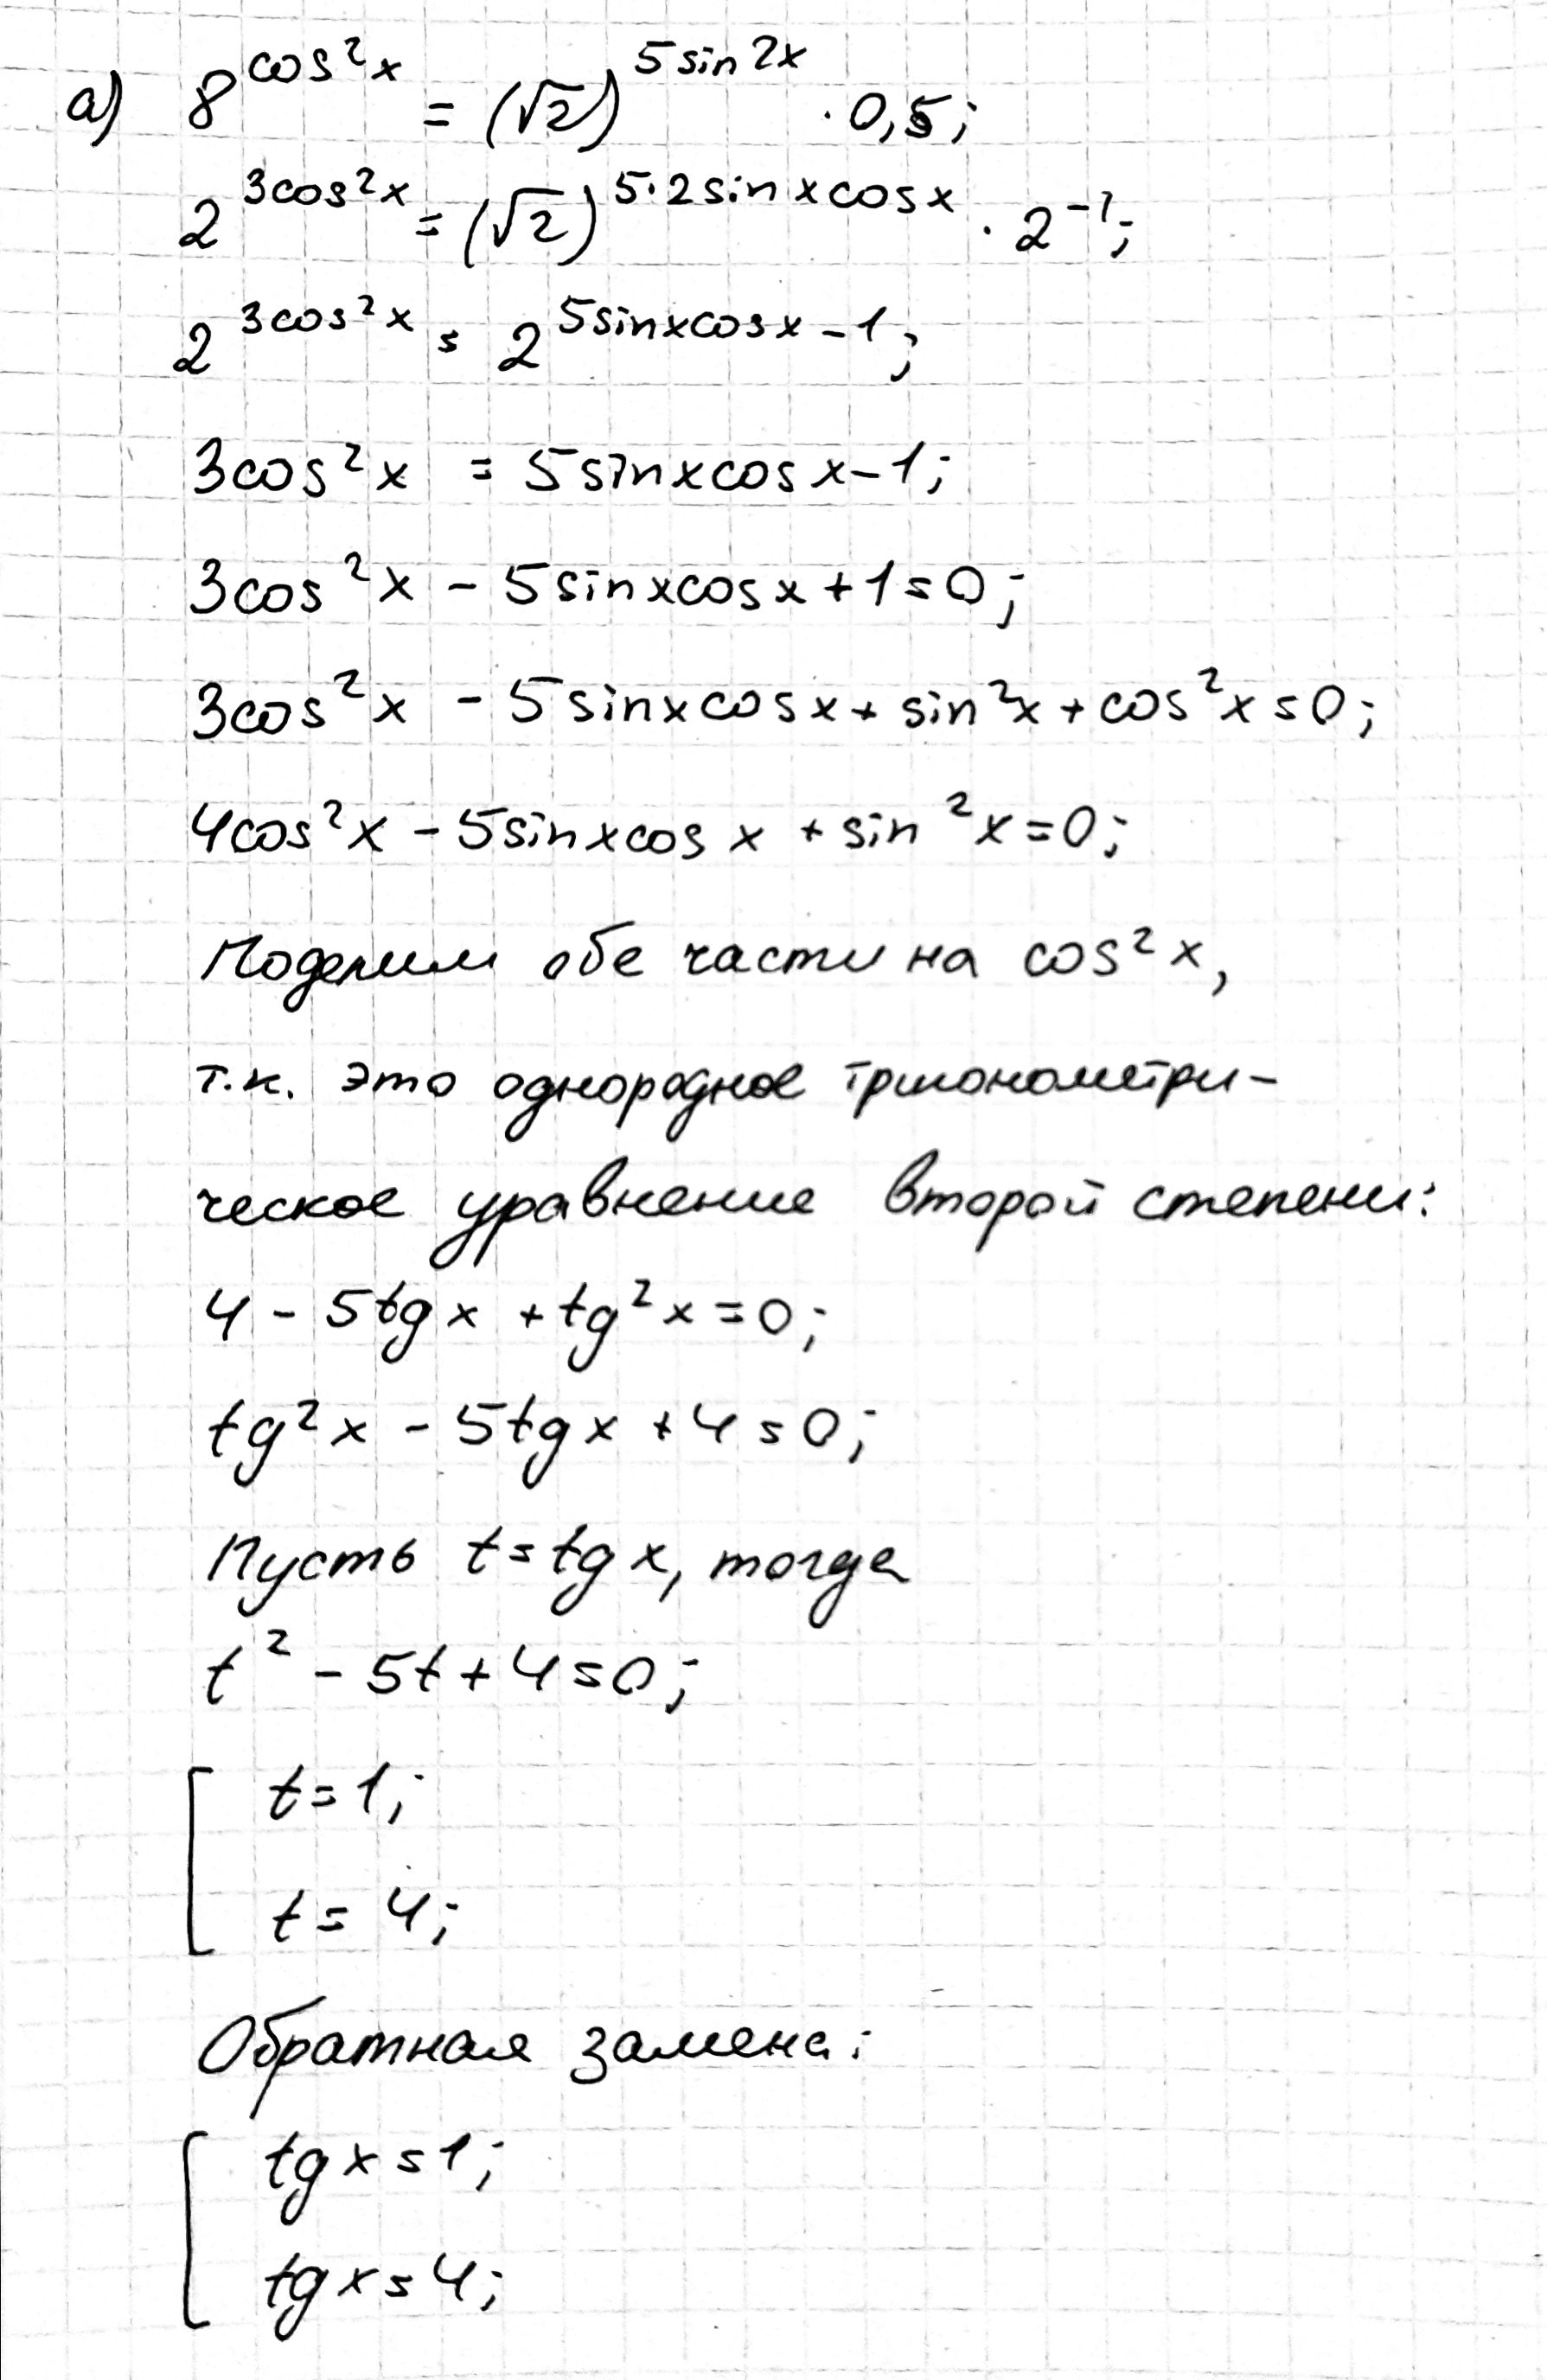 а) 8^{cos²x} = (√2)^{5sin2x} · 0,5;
2^{3cos²x} = (√2)^{5·2sinxcosx} · 2^{-1};
2^{3cos²x} = 2^{5sinxcosx-1};
3cos²x = 5sinxcosx-1;
3cos²x - 5sinxcosx+1=0;
3cos²x - 5sinxcosx+sin²x+cos²x=0;
4cos²x - 5sinxcosx + sin²x=0;
Поделим обе части на cos²x,
т.к. это однородное тригонометри-
ческое уравнение второй степени:
4 - 5tgx + tg²x=0;
tg²x - 5tgx + 4=0;
Пусть t=tgx, тогда
t² - 5t+4=0;
t=1;
t=4;
Обратная замена:
tgx=1;
tgx=4;